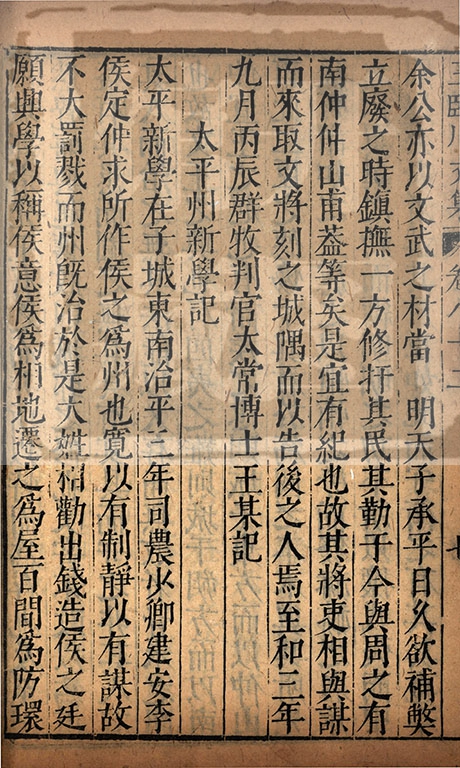 王臨川文集 卷八十二 七
余公亦以文武之材當 明天子承平日久欲補弊
立廢之時鎮撫一方修扞其民其勤于今與周之有
南仲仲山甫葢等矣是宜有紀也故其將吏相與謀
而來取文將刻之城隅而以告後之人焉至和三年
九月丙辰群牧判官太常博士王某記
太平州新學記
太平新學在子城東南治平三年司農少卿建安李
侯定仲求所作侯之爲州也寬以有制靜以有謀故
不大罰戮而州旣治於是大姓相勸出錢造侯之廷
願興學以稱侯意侯爲相地遷之爲屋百間爲防環